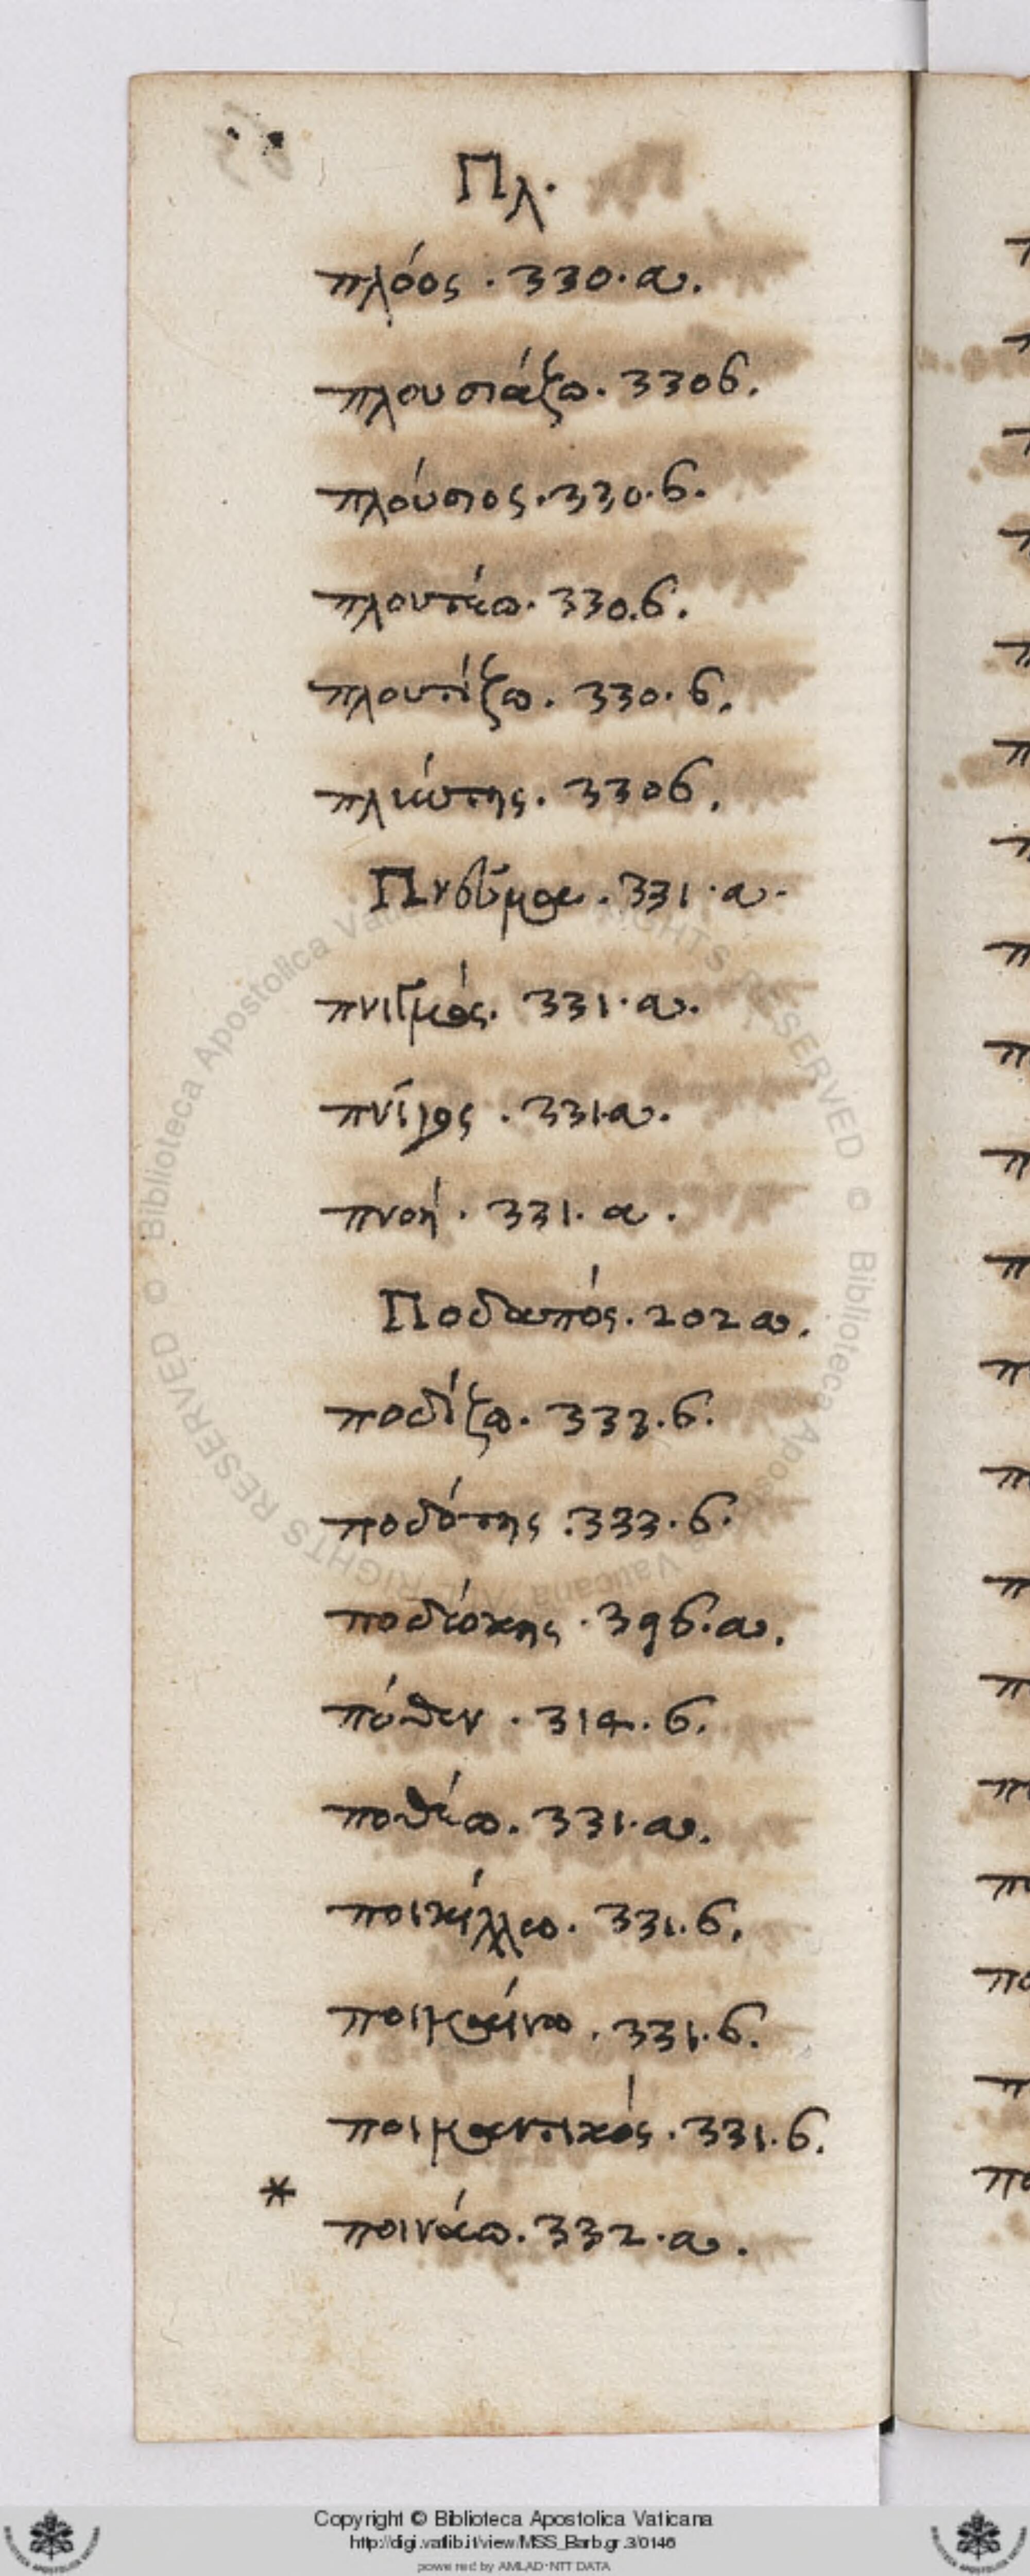 Πλ.
πλόος · 330 · α.
πλουσιάζω. 330 б.
πλούσιος. 330. б.
πλουτέω. 330. б.
πλουτίζω. 330. б.
330 б.
Πνεῦμα. 331. α.
πνιγμός. 331. α.
πνῖγος. 331. α.
πνοή. 331. α.
Ποδαπός. 202 α.
ποδίζω. 333. б.
ποδότης. 333. б.
ποδώκης. 396. α.
πόθεν. 314. б.
ποθέω. 331. α.
ποικίλλω. 331. б.
ποιμαίνω. 331. б.
ποιμαντικός. 331. б.
* ποινάω. 332. α.
Copyright © Biblioteca Apostolica Vaticana
http://digi.vatlib.it/view/MSS_Barb.gr.3/0146
powered by AMLAD-NTT DATA
© Biblioteca Apostolica Vaticana ALL RIGHTS RESERVED